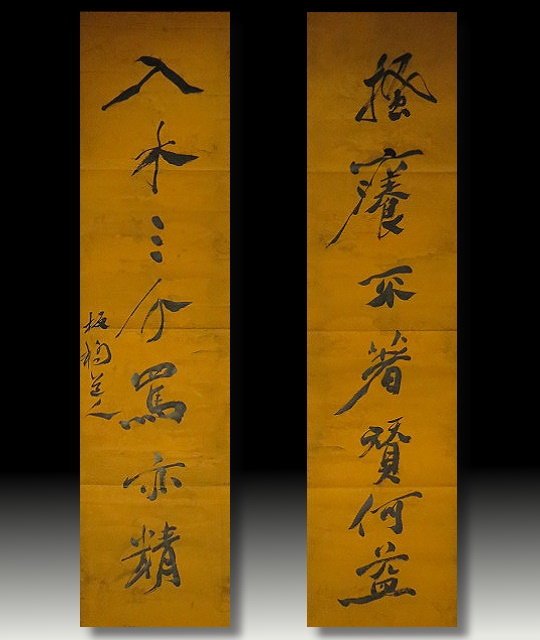 搔癢不著贊何益
入木三分罵亦精
板橋道人